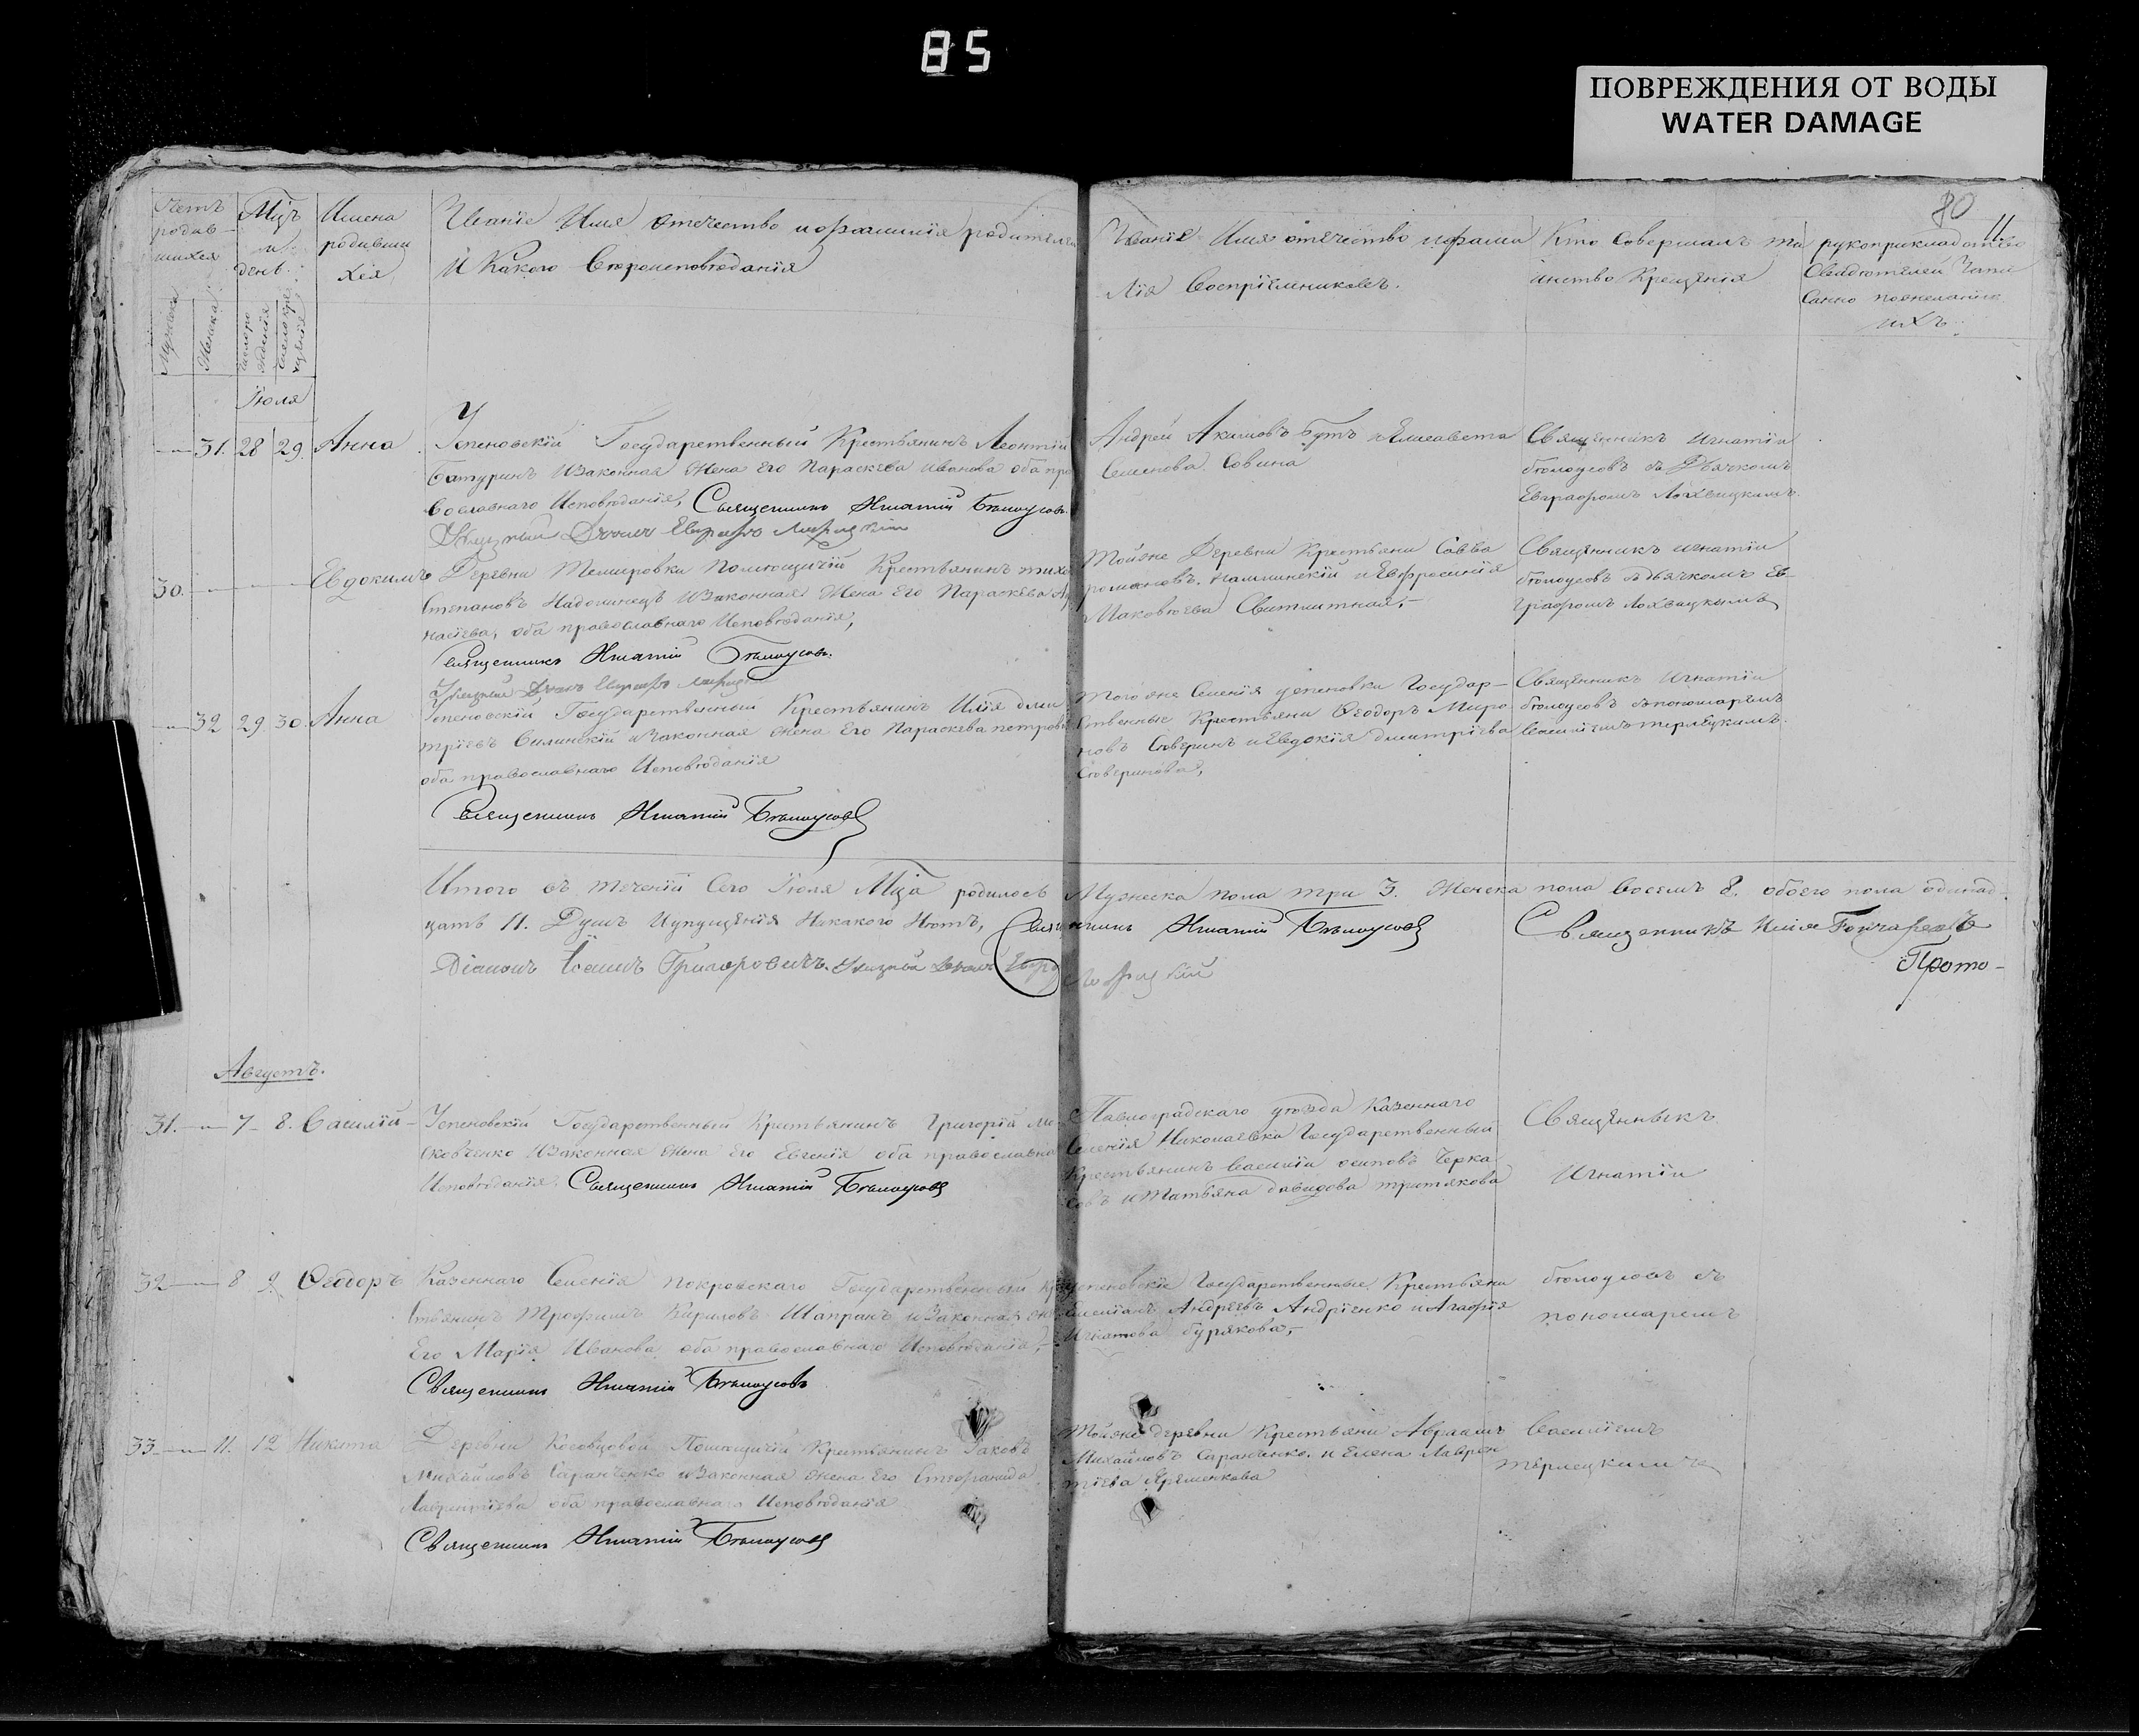 85
ПОВРЕЖДЕНИЯ ОТ ВОДЫ
WATER DAMAGE
80
11
Счетъ родив-шихся
Мужеска
Женска
Мцъ и день
Имена родивши хся
Званіе Имя отечество и фамилія родителей
И Какого Вѣроисповѣданія
Званіе Имя отечество и фами
лія Воспріемниковъ.
Кто Совершалъ та
инство Крещенія
рукоприкладство
Свидѣтелей Запи
санно по желанію
ихъ
Іюля
31. 28 29. Анна
Успеновскій Государственный Крестьянинъ Леонтій
Батуринъ и Законная Жена Его Параскева Иванова оба пра
вославнаго Исповѣданія, Священникъ Игнатій Бѣлоусовъ.
Андрей Акимовъ Бутъ и Елисавета
Семенова Совина
Священникъ Игнатіи
бѣлоусовъ съ Дьячкомъ
Евграфомъ Лохвицкимъ.
30. Евдокимъ
Деревни Темировки Помѣщичій Крестьянинъ тихо
Степановъ Надолинецъ и Законная Жена Его Параскева
насіева, оба православнаго Исповѣданія,
Священникъ Игнатій Бѣлоусовъ.
Тойже Деревни Крестьяни Савва
романовъ и Евфросинія
Яковлева
Священникъ игнатіи
бѣлоусовъ съ дьячкомъ Ев-
графомъ Лохвицкимъ
32 29. 30. Анна
Успеновскій Государственный Крестьянинъ Илія дми
тріевъ Силинскій и Законная жена Его Параскева петрова
оба православнаго Исповѣданія
Священникъ Игнатій Бѣлоусовъ
Того же Селенія успеновки Государ-
ственные Крестьяни Ѳеодоръ Миро
новъ Сѣверинъ и Евдокія дмитріева
Сѣверинова,
Священникъ Игнатіи
бѣлоусовъ съ пономаремъ
Василіемъ терлецкимъ.
Итого въ теченіи Сего Іюля Мца родилось Мужеска пола три 3. Женска пола восемь 8. обоего пола одинад-
цать 11. Душъ И упущенія Никакого Нѣтъ, Священникъ Игнатій Бѣлоусовъ
Священникъ Илія Гончаровъ
Діаконъ Іоаннъ Григоровичъ.
Прото-
Августъ.
31. 7 8. Василій
Успеновскій Государственный Крестьянинъ Григорій Мо
сковченко и Законная Жена Его Евгенія оба православна
Исповѣданія. Священникъ Игнатій Бѣлоусовъ
Павлоградскаго уѣзда Казеннаго
Селенія Николаевка Государственный
Крестьянинъ Василіи осиповъ Черка
совъ и Татьяна давидова третякова
Священныкъ
Игнатіи
32 8 9. Ѳеодоръ
Казеннаго Селенія покровскаго Государственный Кре
стьянинъ Трофимъ Кариловъ Шапранъ и Законная же
Его Марія Иванова оба православнаго Исповѣданія,
Священникъ Игнатій Бѣлоусовъ
Успеновскіе Государственные Крестьяни
Емеліанъ Андреевъ Андріенко и Агафія
Игнатова бурякова,
бѣлоусовъ съ
пономаремъ
33 11. 12 Никита
Деревни Помѣщичій Крестьянинъ Іаковъ
Михайловъ Саранченко и Законная жена Его Стефанида
Лаврентіева оба православнаго Исповѣданія
Священникъ Игнатій Бѣлоусовъ
Тойже деревни Крестьяни Авраамъ
Михайловъ Саранченко, и Елена Лаврен
тіева Яременкова
Василіемъ
терлецкимъ